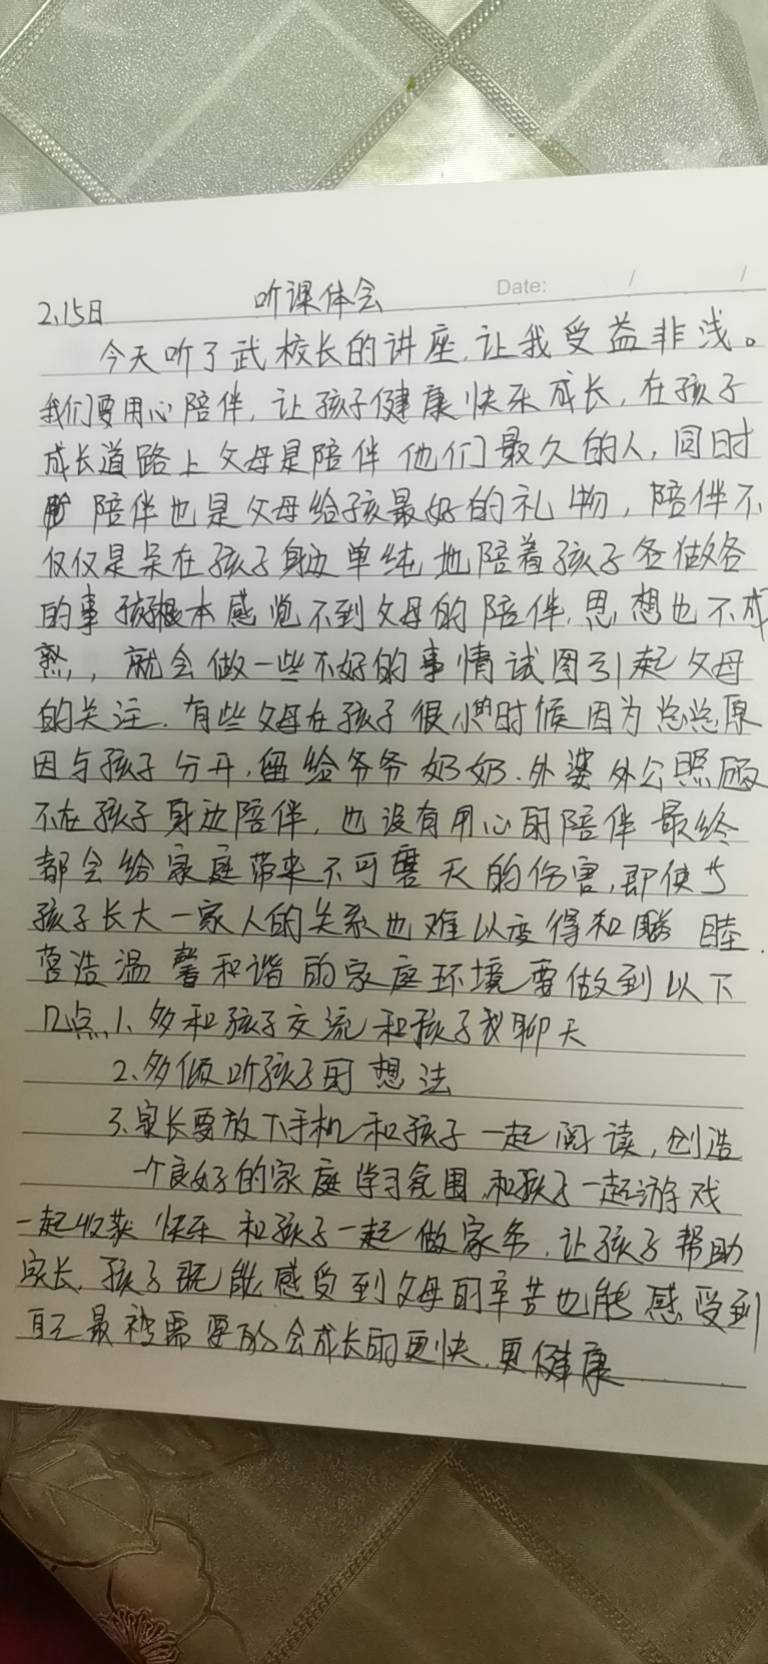 2.15日 听课体会 Date: / /
今天听了武校长的讲座,让我受益非浅。
我们要用心陪伴,让孩子健康快乐成长,在孩子
成长道路上父母是陪伴他们最久的人,同时
陪伴也是父母给孩最好的礼物,陪伴不
仅仅是呆在孩子身边单纯地陪着孩子各做各
的事孩子根本感觉不到父母的陪伴.思想也不成
熟,,就会做一些不好的事情试图引起父母
的关注.有些父母在孩子很小的时候因为总总原
因与孩子分开,留给爷爷奶奶.外婆外公照顾
不在孩子身边陪伴,也没有用心的陪伴最终
都会给家庭带来不可磨灭的伤害,即使
孩子长大一家人的关系也难以变得和睦.
营造温馨和谐的家庭环境要做到以下
几点,1、多和孩子交流和孩子聊天
2、多倾听孩子的想法
3、家长要放下手机和孩子一起阅读,创造
一个良好的家庭学习氛围,和孩子一起游戏
一起收获快乐和孩子一起做家务.让孩子帮助
家长,孩子既能感受到父母的辛苦也能感受到
自己最被需要的会成长的更快.更健康